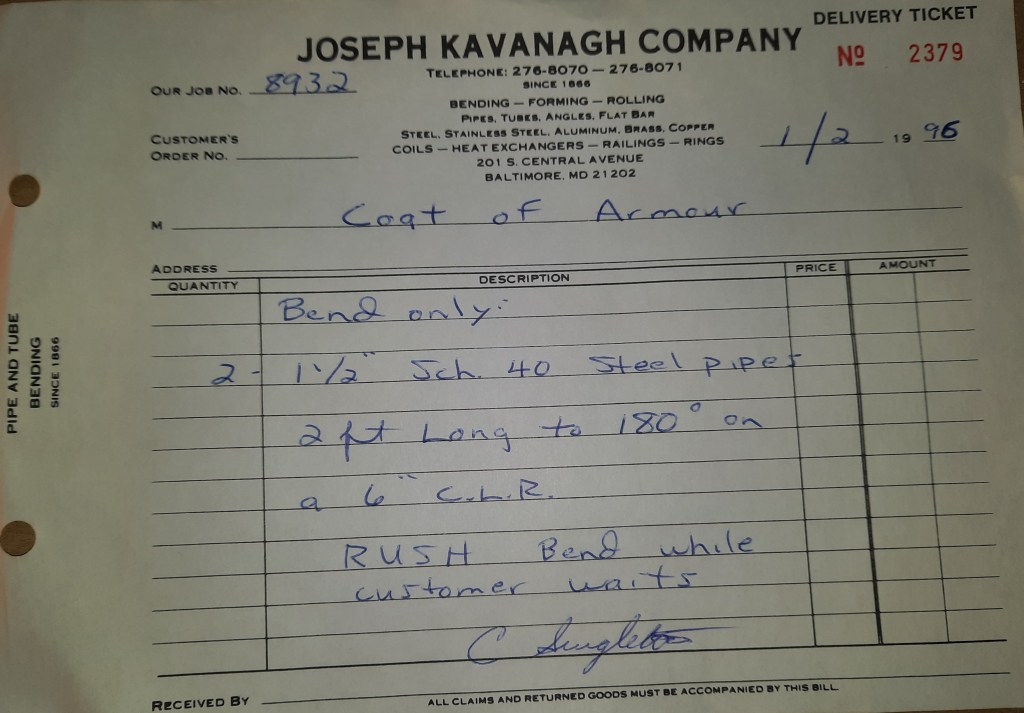 DELIVERY TICKET
JOSEPH KAVANAGH COMPANY
Nº 2379
TELEPHONE: 276-8070 — 276-8071
SINCE 1866
OUR JOB NO. 8932
BENDING — FORMING — ROLLING
PIPES, TUBES, ANGLES, FLAT BAR
STEEL, STAINLESS STEEL, ALUMINUM, BRASS, COPPER
CUSTOMER'S
ORDER NO.
COILS — HEAT EXCHANGERS — RAILINGS — RINGS
1/2 19 96
201 S. CENTRAL AVENUE
BALTIMORE, MD 21202
M Coat of Armour
ADDRESS
QUANTITY DESCRIPTION PRICE AMOUNT
Bend only:
2 - 1 1/2" Sch. 40 Steel pipes
2 ft Long to 180° on
a 6" C.L.R.
RUSH Bend while
customer waits
C Singleton
RECEIVED BY
ALL CLAIMS AND RETURNED GOODS MUST BE ACCOMPANIED BY THIS BILL
PIPE AND TUBE
BENDING
SINCE 1866